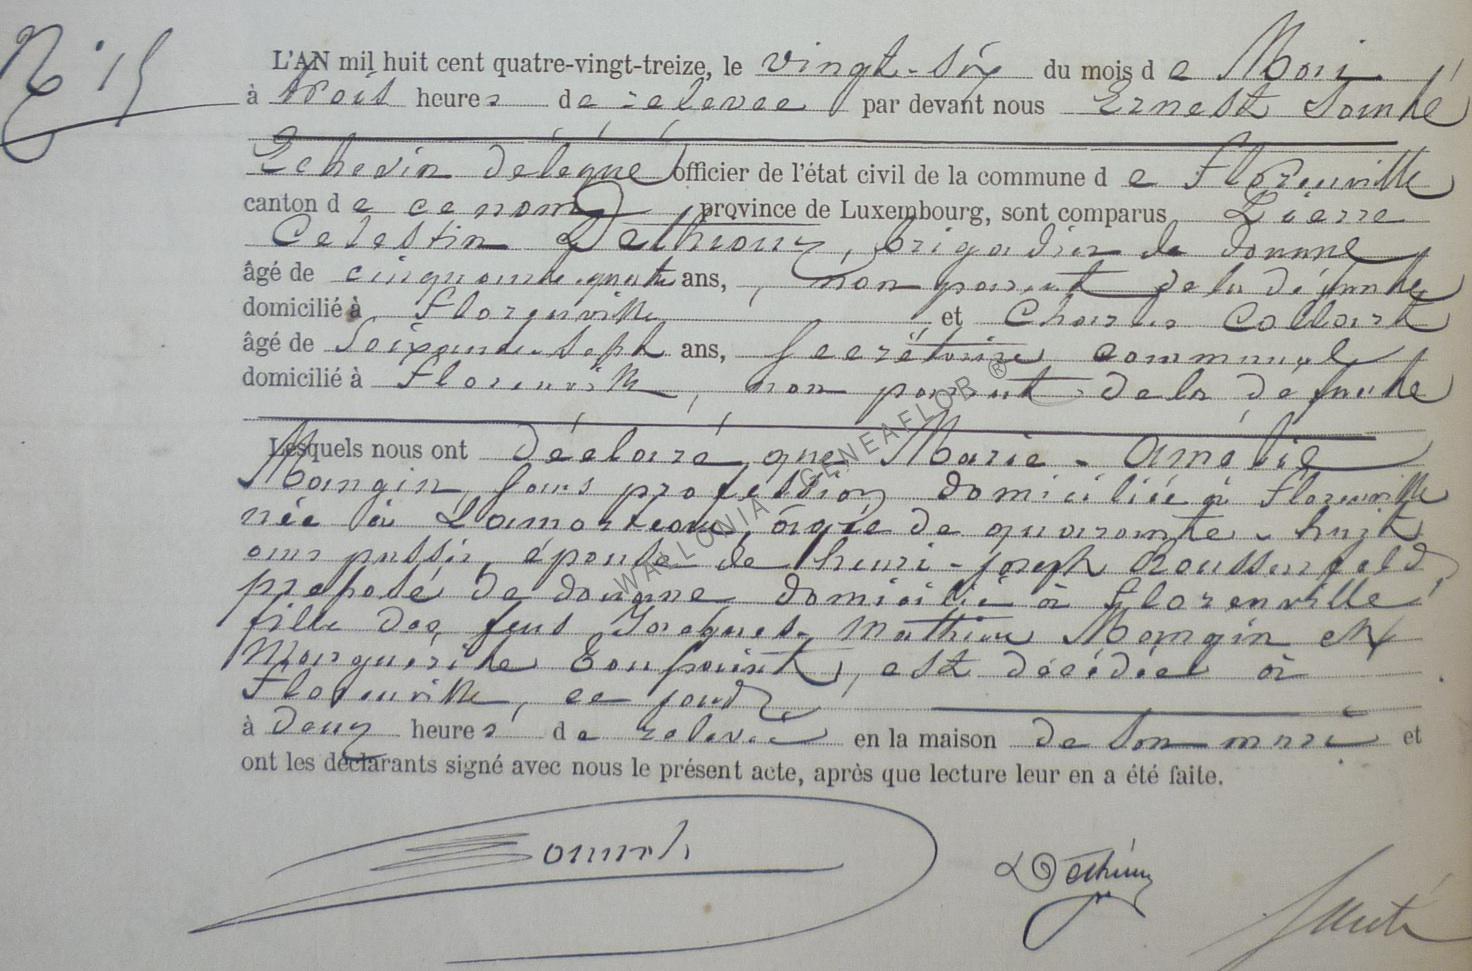 N° 15
L'AN mil huit cent quatre-vingt-treize, le vingt-six du mois de Mai
à trois heures de relevée par devant nous Ernest
Echevin délégué officier de l'état civil de la commune de Florenville
canton de ce nom province de Luxembourg, sont comparus Pierre
Celestin Dethioux, brigadier de douane
âgé de cinquante quatre ans, non parent de la défunte
domicilié à Florenville et Charles Collart
âgé de Soixante sept ans, Secrétaire communal
domicilié à Florenville, non parent de la défunte
Lesquels nous ont déclaré que Marie-Amélie
Mangin, sans profession domiciliée à Florenville
née à Lamorteau, âgée de quarante-huit
ans passés, épouse de Henri-Joseph
préposé de douane domicilié à Florenville
fille des feus Jacques-Mathieu Mangin et
Marguerite est décédée à
Florenville, ce jour
à deux heures de relevée en la maison de son mari et
ont les déclarants signé avec nous le présent acte, après que lecture leur en a été faite.
WALLONIA GENEAFLOR ®